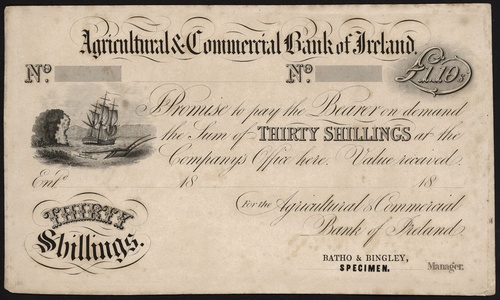 Agricultural & Commercial Bank of Ireland.
No. No. £1.10s
I Promise to pay the Bearer on demand
the Sum of THIRTY SHILLINGS at the
Company's Office here. Value received.
Entd. 18 18
For the Agricultural & Commercial
Bank of Ireland
THIRTY
Shillings.
BATHO & BINGLEY,
SPECIMEN. Manager.